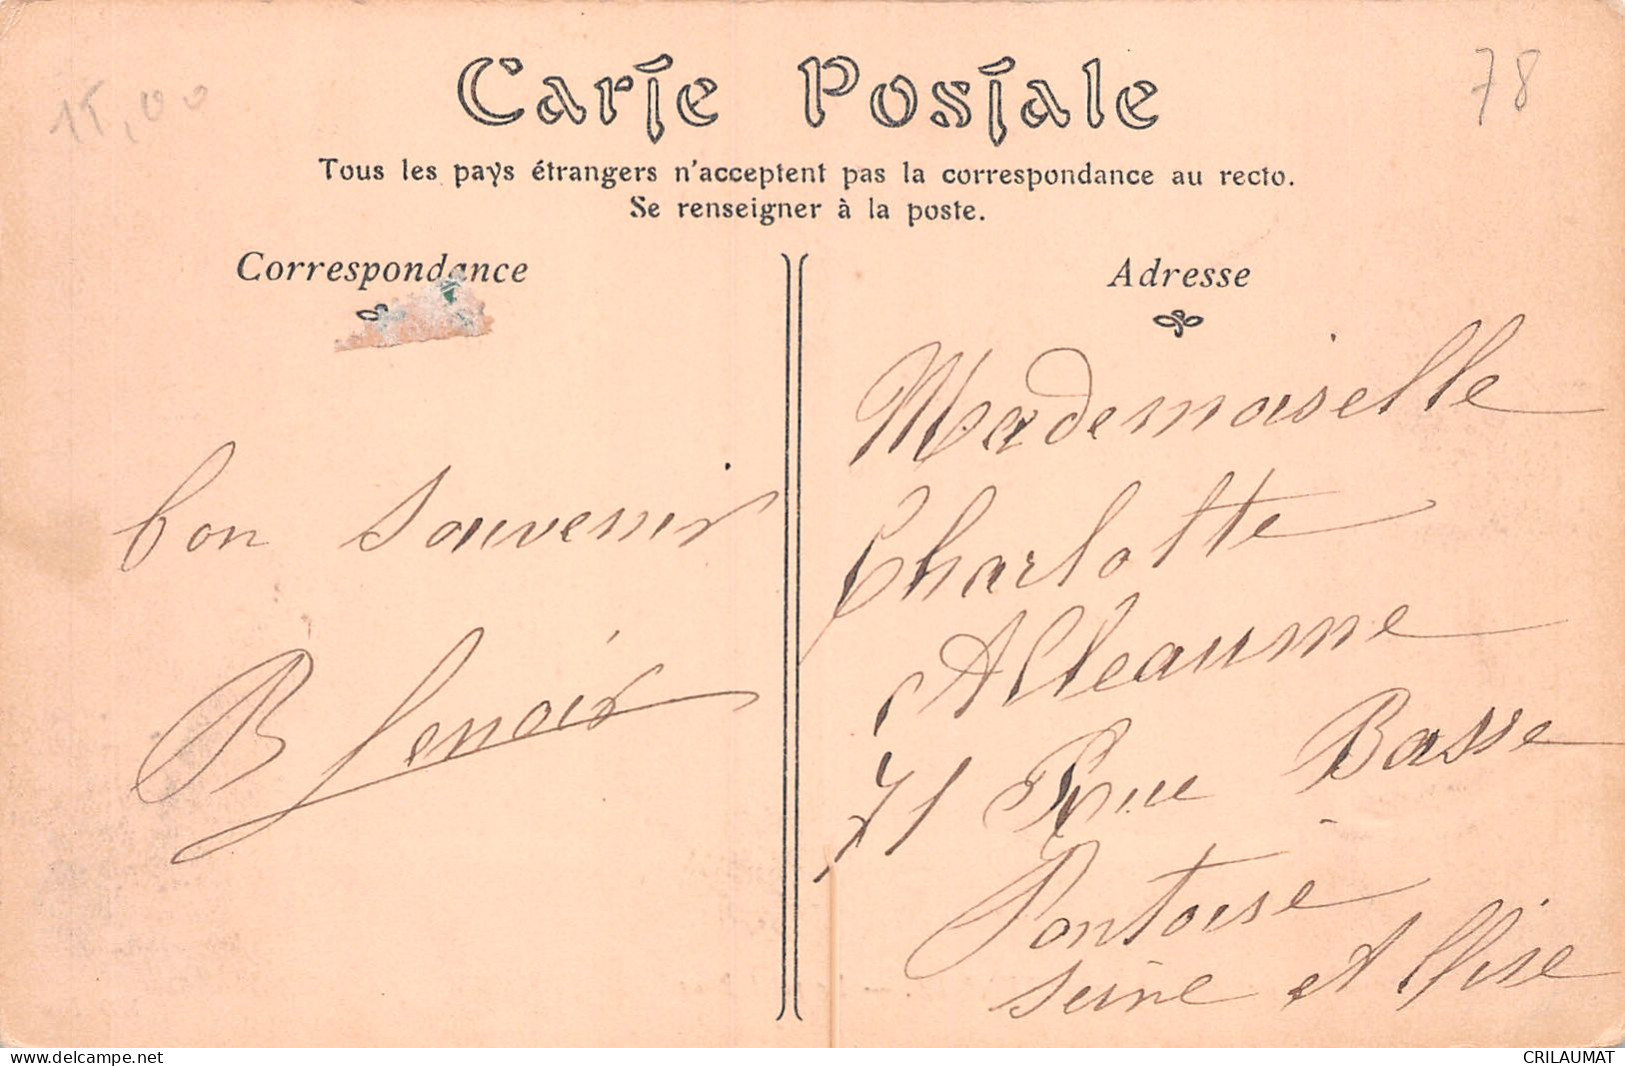 15,00
78
Carte Postale
Tous les pays étrangers n'acceptent pas la correspondance au recto.
Se renseigner à la poste.
Correspondance
bon souvenir
B Lenoir
Adresse
Mademoiselle
Charlotte
Alleaume
71 Rue Basse
Pontoise
Seine et Oise
delcampe.net
CRILAUMAT